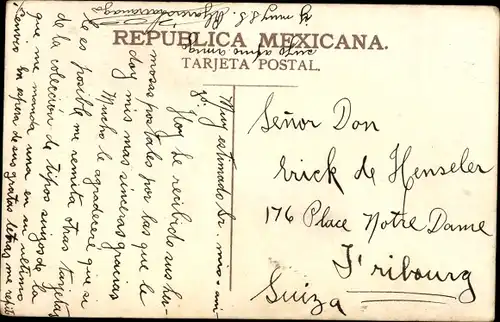 REPUBLICA MEXICANA.
TARJETA POSTAL.
Señor Don
Erick de Henseler
176 Place Notre Dame
Fribourg
Suiza
Muy estimado Sr. mio y ami-
go. Hoy he recibido sus her-
mosas postales por las que le
doy mis mas sinceras gracias
Mucho le agradeceré que si
le es posible me remita otras tarjetas
de la colección de tipos suizos de la
que me manda una en su ultimo
envio. En espera de sus gratas letras me repito
suyo afmo amigo
y muy S.S.